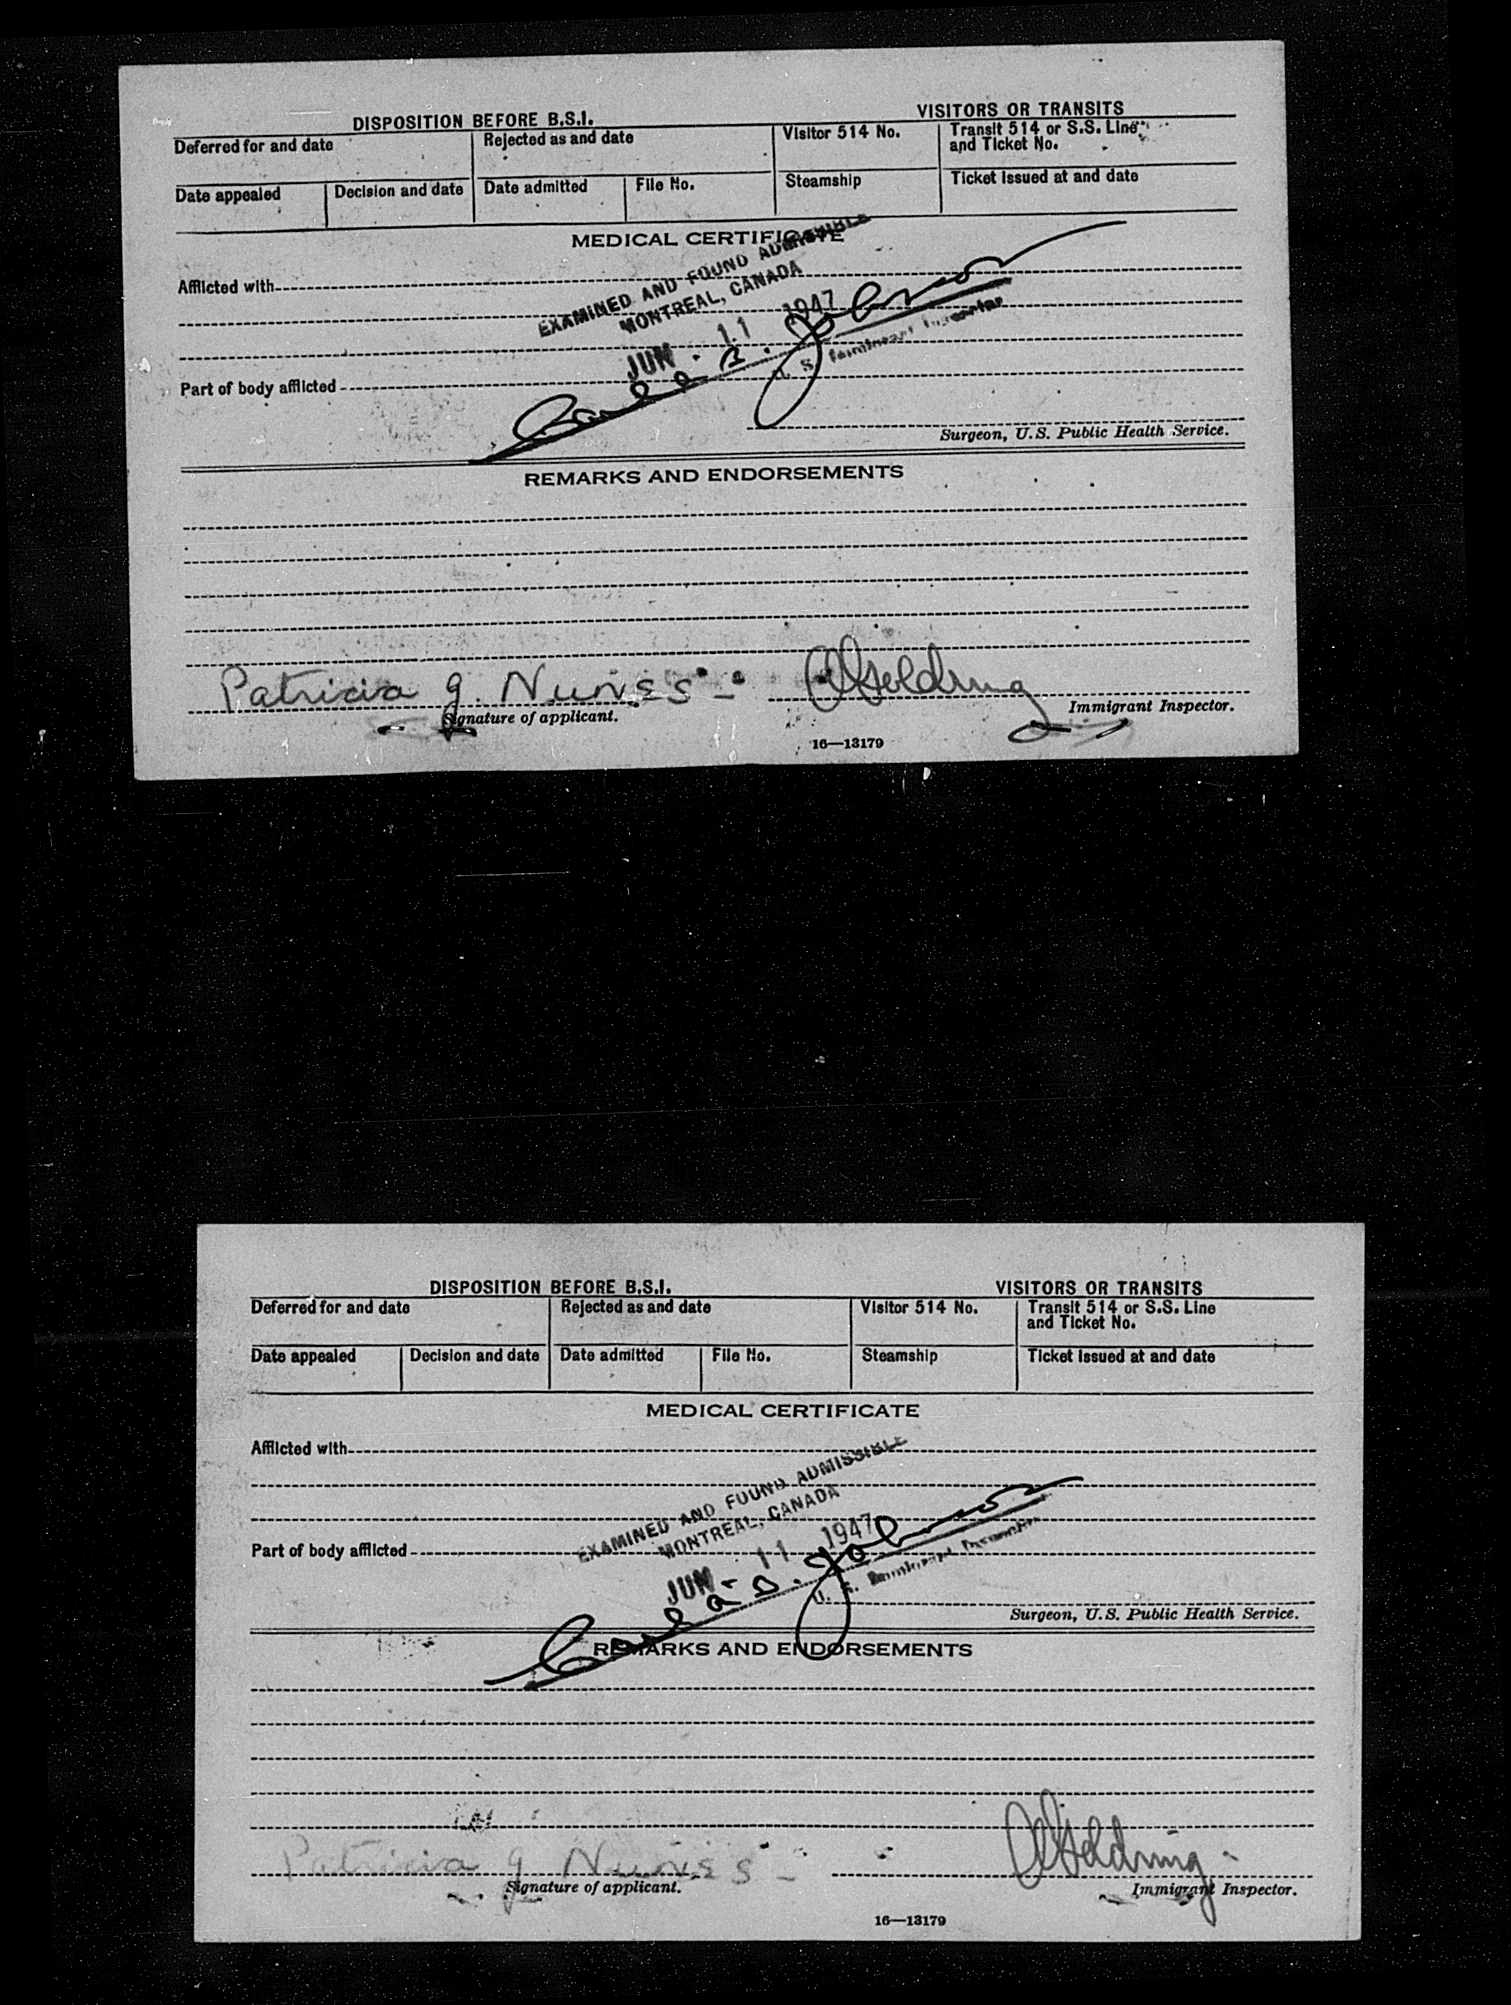 DISPOSITION BEFORE B.S.I.
VISITORS OR TRANSITS
Deferred for and date
Rejected as and date
Visitor 514 No.
Transit 514 or S.S. Line
and Ticket No.
Date appealed
Decision and date
Date admitted
File No.
Steamship
Ticket issued at and date
MEDICAL CERTIFICATE
Afflicted with
EXAMINED AND FOUND ADMISSIBLE
MONTREAL, CANADA
JUN 11 1947
U. S. Immigrant Inspector
Part of body afflicted
Surgeon, U.S. Public Health Service.
REMARKS AND ENDORSEMENTS
Patricia J. Nuness
Signature of applicant.
Immigrant Inspector.
16—13179
DISPOSITION BEFORE B.S.I.
VISITORS OR TRANSITS
Deferred for and date
Rejected as and date
Visitor 514 No.
Transit 514 or S.S. Line
and Ticket No.
Date appealed
Decision and date
Date admitted
File No.
Steamship
Ticket issued at and date
MEDICAL CERTIFICATE
Afflicted with
EXAMINED AND FOUND ADMISSIBLE
MONTREAL, CANADA
JUN 11 1947
U. S. Immigrant Inspector
Part of body afflicted
Surgeon, U.S. Public Health Service.
REMARKS AND ENDORSEMENTS
Patricia J Nuness
Signature of applicant.
Immigrant Inspector.
16—13179